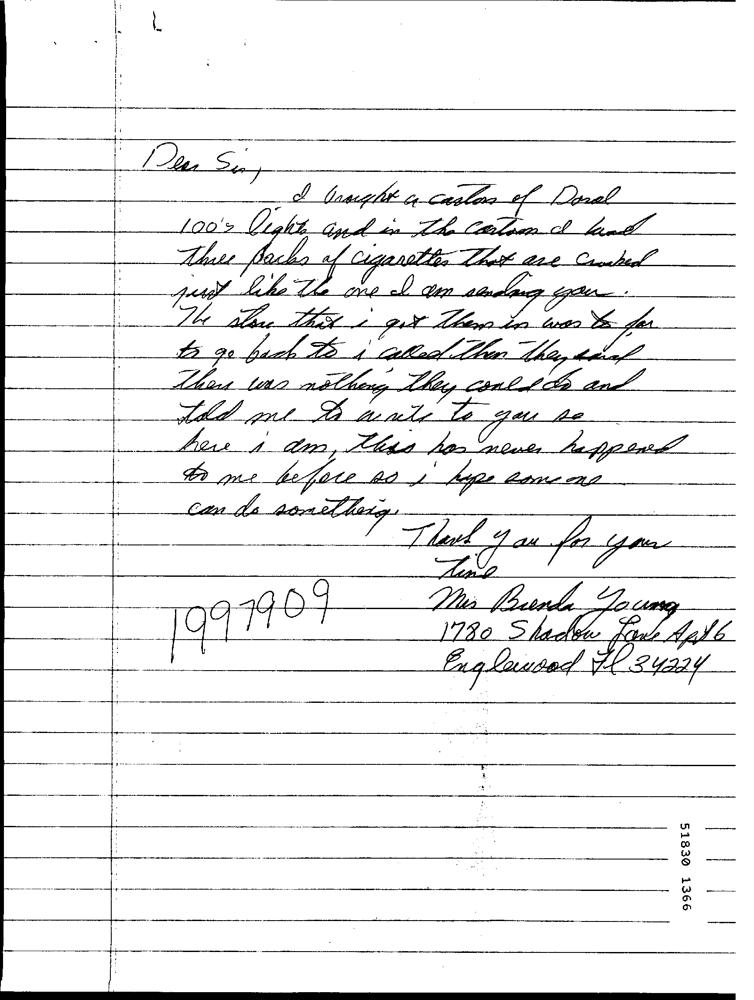 Dear Sir,
I braught a carton of Doral
100's lights and in the cartoon I had
three packs of cigarettes that are crooked
just like the one I am sending you.
The store that i got them in was to far
to go back to i called then they said
there was nothing they could do and
told me to write to you so
here i am, this has never happened
to me before so i hope someone
can do something.
Thank you for your
time
Mrs Brenda Young
1780 Shadow Lane Apt 6
Englewood Fl 34224
1997909
51830 1366